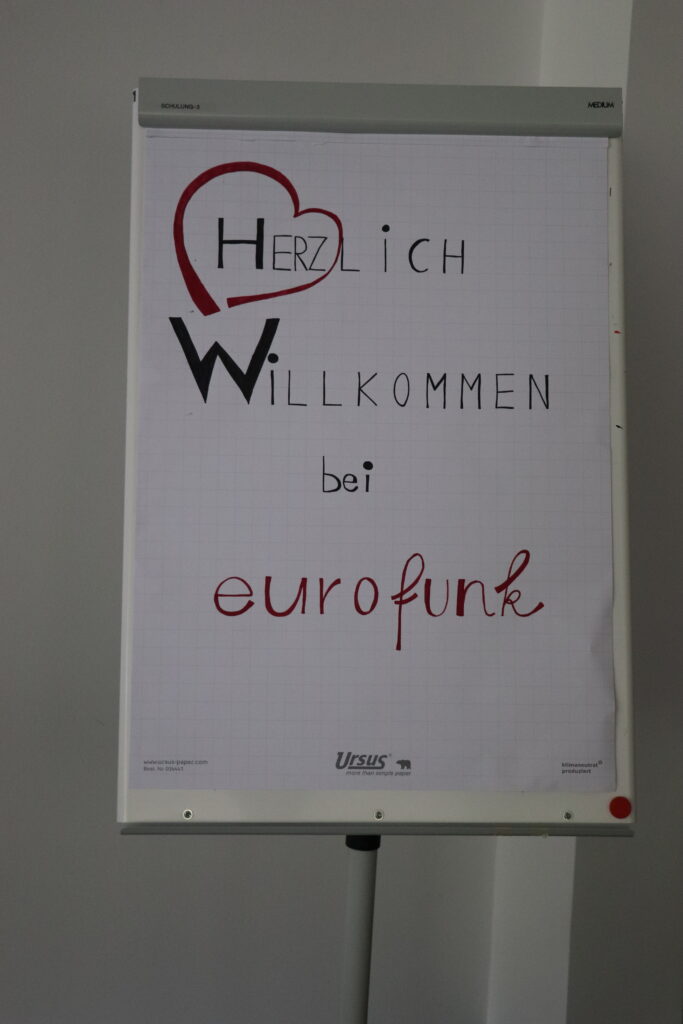 SCHULUNG-2
MEDIUM
HERZLiCH
WiLLKOMMEN
bei
eurofunk
www.ursus-paper.com
Ursus®
klimaneutral
more than simple paper
produziert